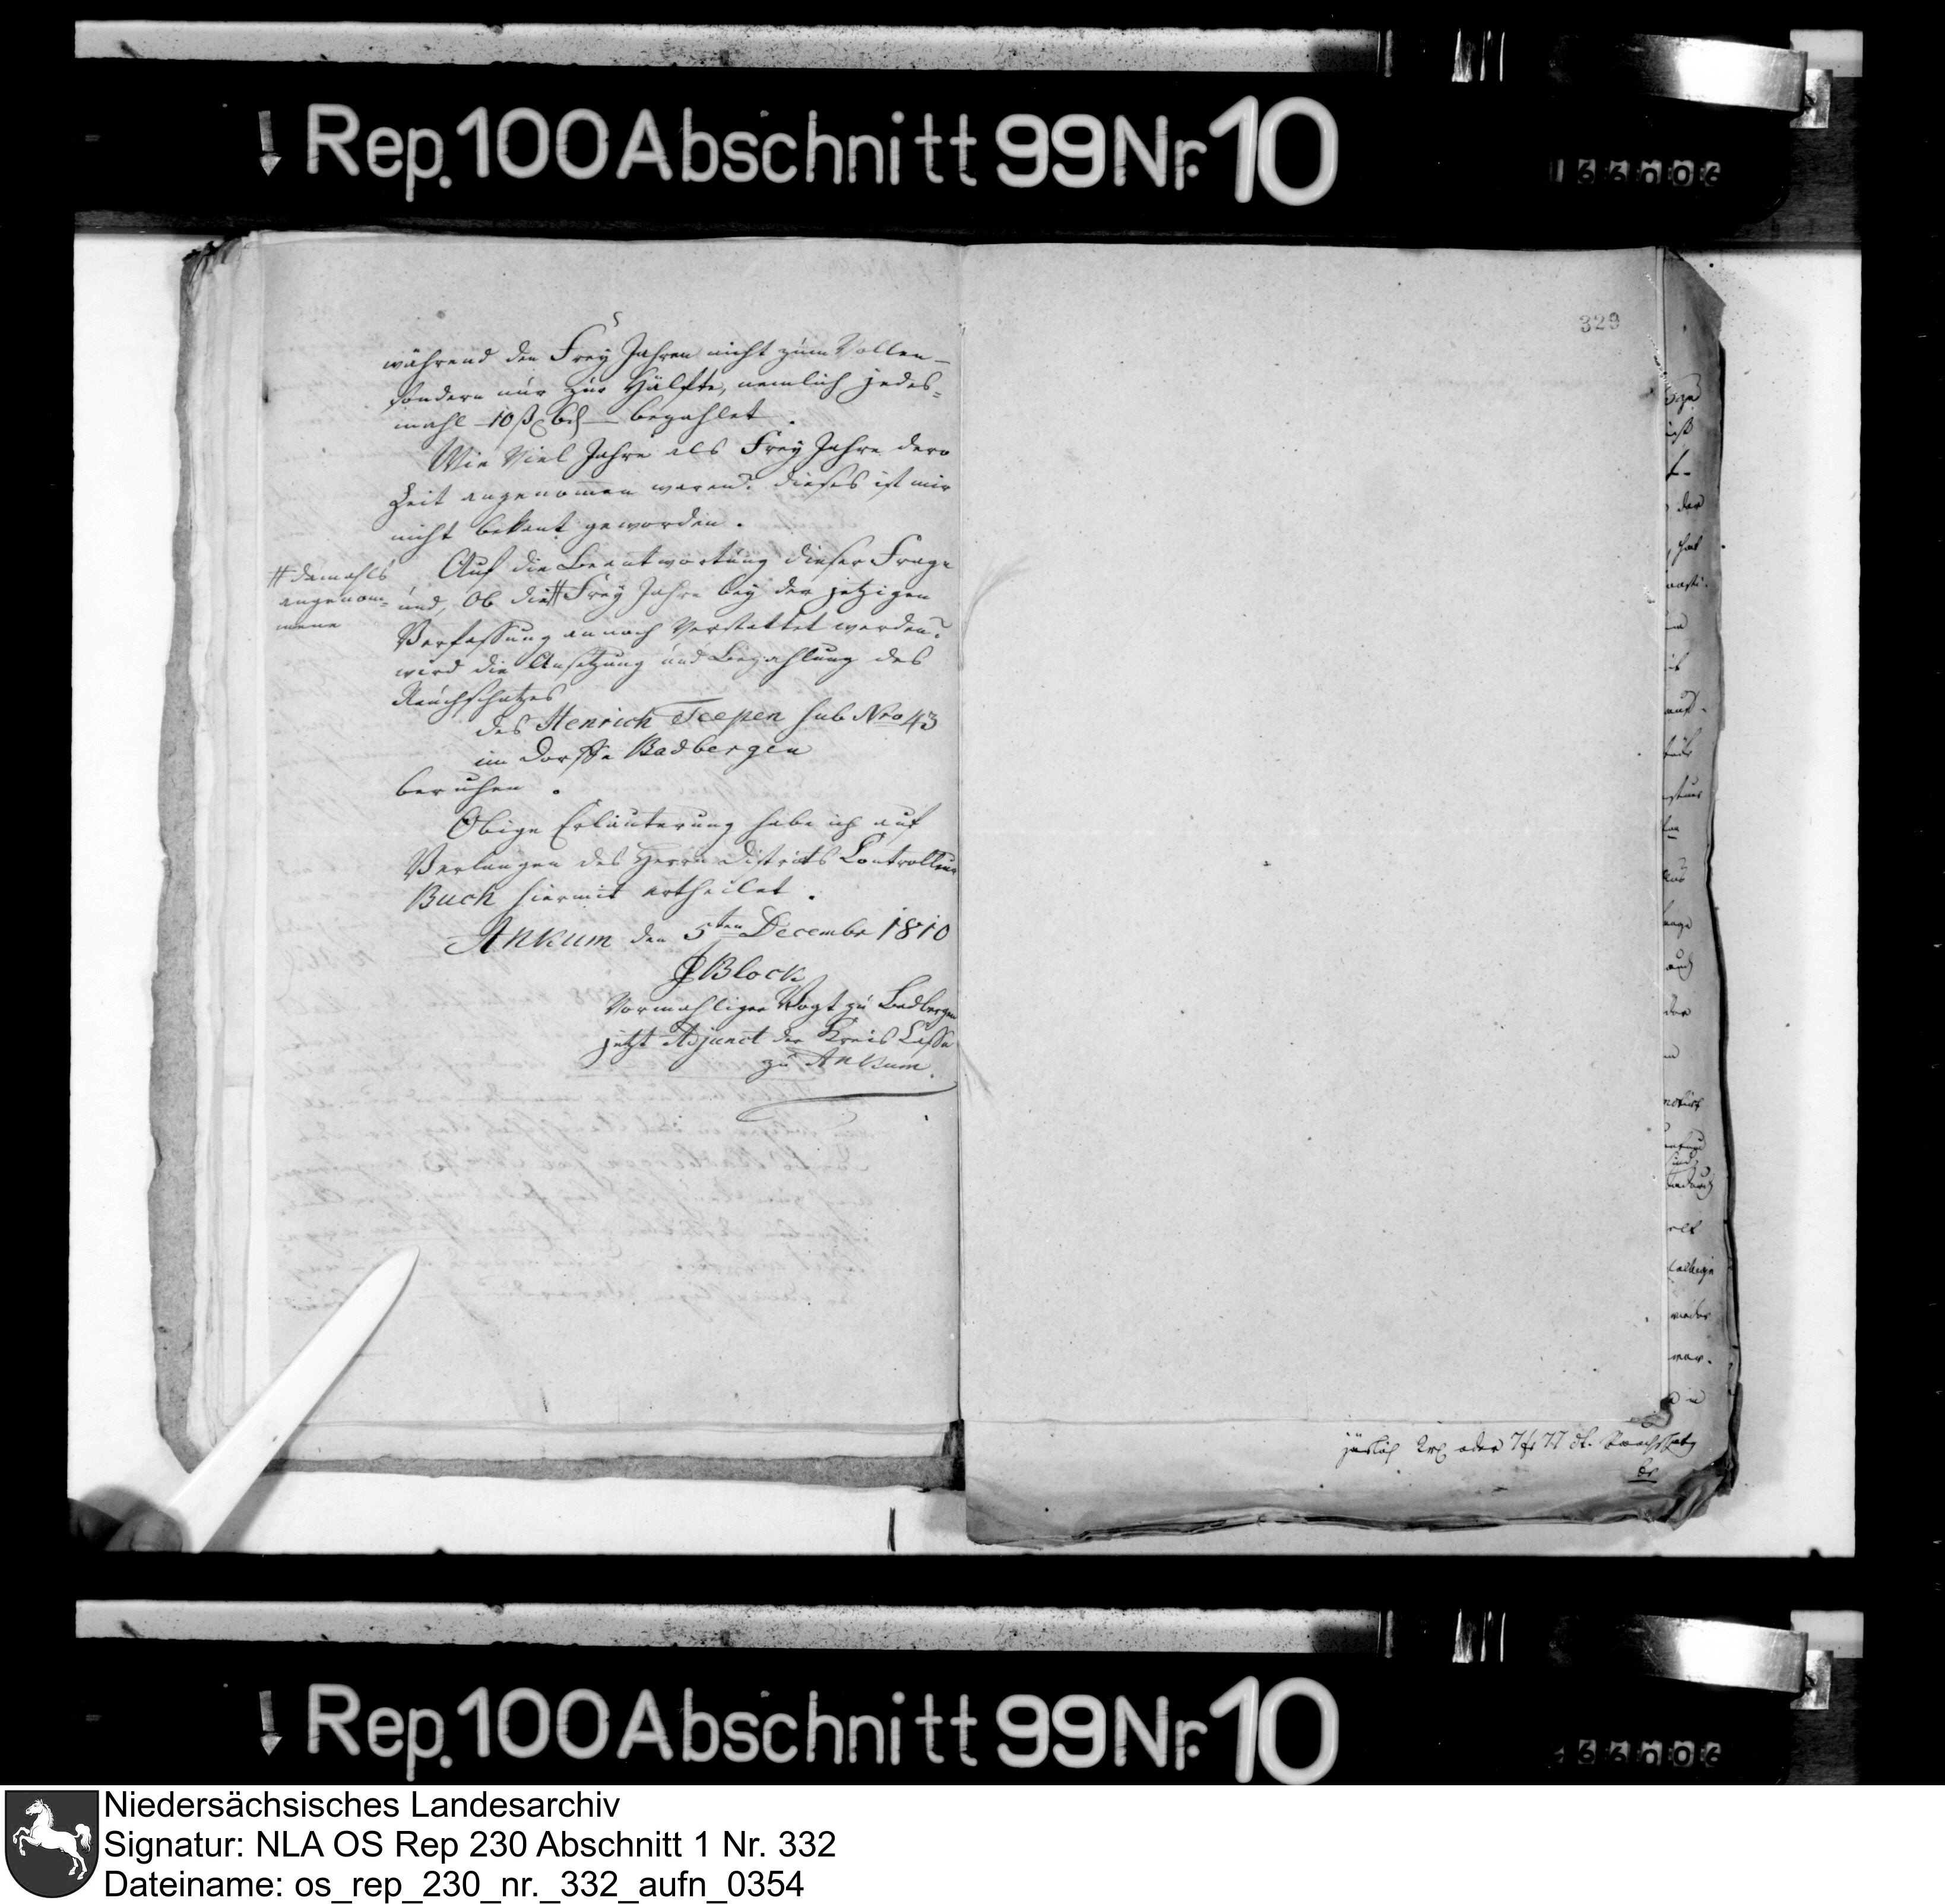 Rep. 100 Abschnitt 99 Nr. 10
166006
während den Frey Jahren nicht zum Vollen
sondern nur zur Hälfte, nemlich jedes=
mahl 10 ß 6 d bezahlet.
Wie Viel Jahre als Frey Jahre dero
Zeit angenommen waren? dieses ist mir
nicht bekant geworden.
Auf die Beantwortung dieser Frage
und, Ob die # Frey Jahre bey der jetzigen
# damahls
angenom=
mene
Verfassung annoch Verstattet werden?
wird die Ansetzung und Bezahlung des
Rauchschatzes
des Henrich Teepen sub Nro 43
im Dorffe Badbergen
beruhen.
Obige Erläuterung habe ich auf
Verlangen des Herrn Districts Controlleur
Buck hiermit ertheilet.
Ankum den 5ten Decembr 1810
Block
Vormahliger Vogt zu Badbergen
jetzt Adjunct der Kreis Casse
zu Ankum.
329
der
auch
der
wieder
oder 7 fr 77
Rep. 100 Abschnitt 99 Nr. 10
66006
Niedersächsisches Landesarchiv
Signatur: NLA OS Rep 230 Abschnitt 1 Nr. 332
Dateiname: os_rep_230_nr._332_aufn_0354